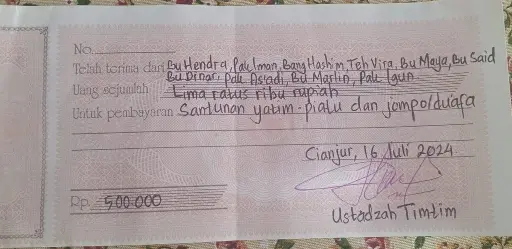 No.
Telah terima dari Bu Hendra, Pak Iman, Bang Hashim, Teh Vira, Bu Maya, Bu Said
Bu Dinar, Pak Asradi, Bu Marlin, Pak Igun
Uang sejumlah Lima ratus ribu rupiah
Untuk pembayaran Santunan yatim-piatu dan jompo/duafa
Cianjur, 16 Juli 2024
Rp. 500.000
Ustadzah Timtim